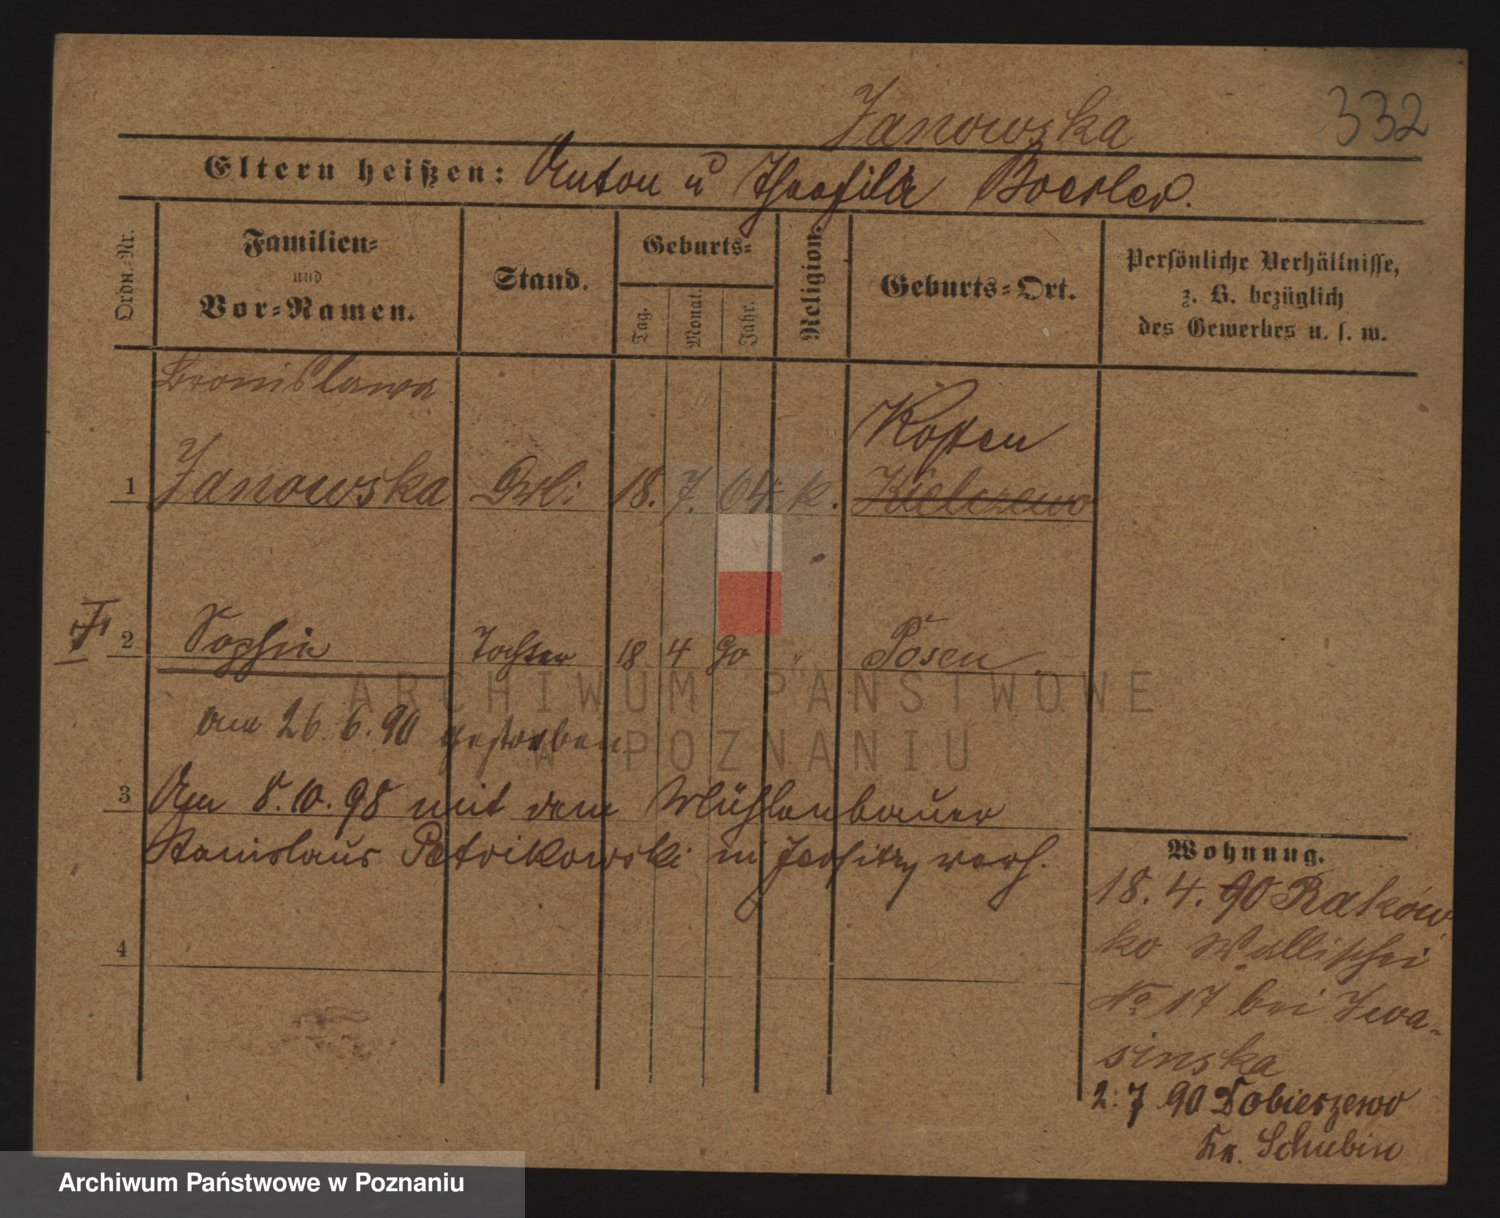 Janowska
332
Eltern heißen: Anton u Theofila Boesler.
Ordn.-Nr.
Familien-
und
Vor-Namen.
Stand.
Geburts-
Tag.
Monat.
Jahr.
Religion.
Geburts-Ort.
Persönliche Verhältnisse,
z. B. bezüglich
des Gewerbes u. s. w.
Bronislawa
Kosten
1 Janowska 18. 7. 64. k. Kielczewo
2 Sophie Tochter 18 4 90 " Posen
am 26. 6. 90 gestorben
3 Am 8. 10. 98 mit dem Mühlenbauer
Stanislaus Petrikowski in Jersitz verh.
4
Wohnung.
18. 4. 90 Raków-
ko Wallischei
No 17 bei Iwa-
sinska
2. 7 90 Dobieszewo
Kr. Schubin
ARCHIWUM PAŃSTWOWE
W POZNANIU
Archiwum Państwowe w Poznaniu